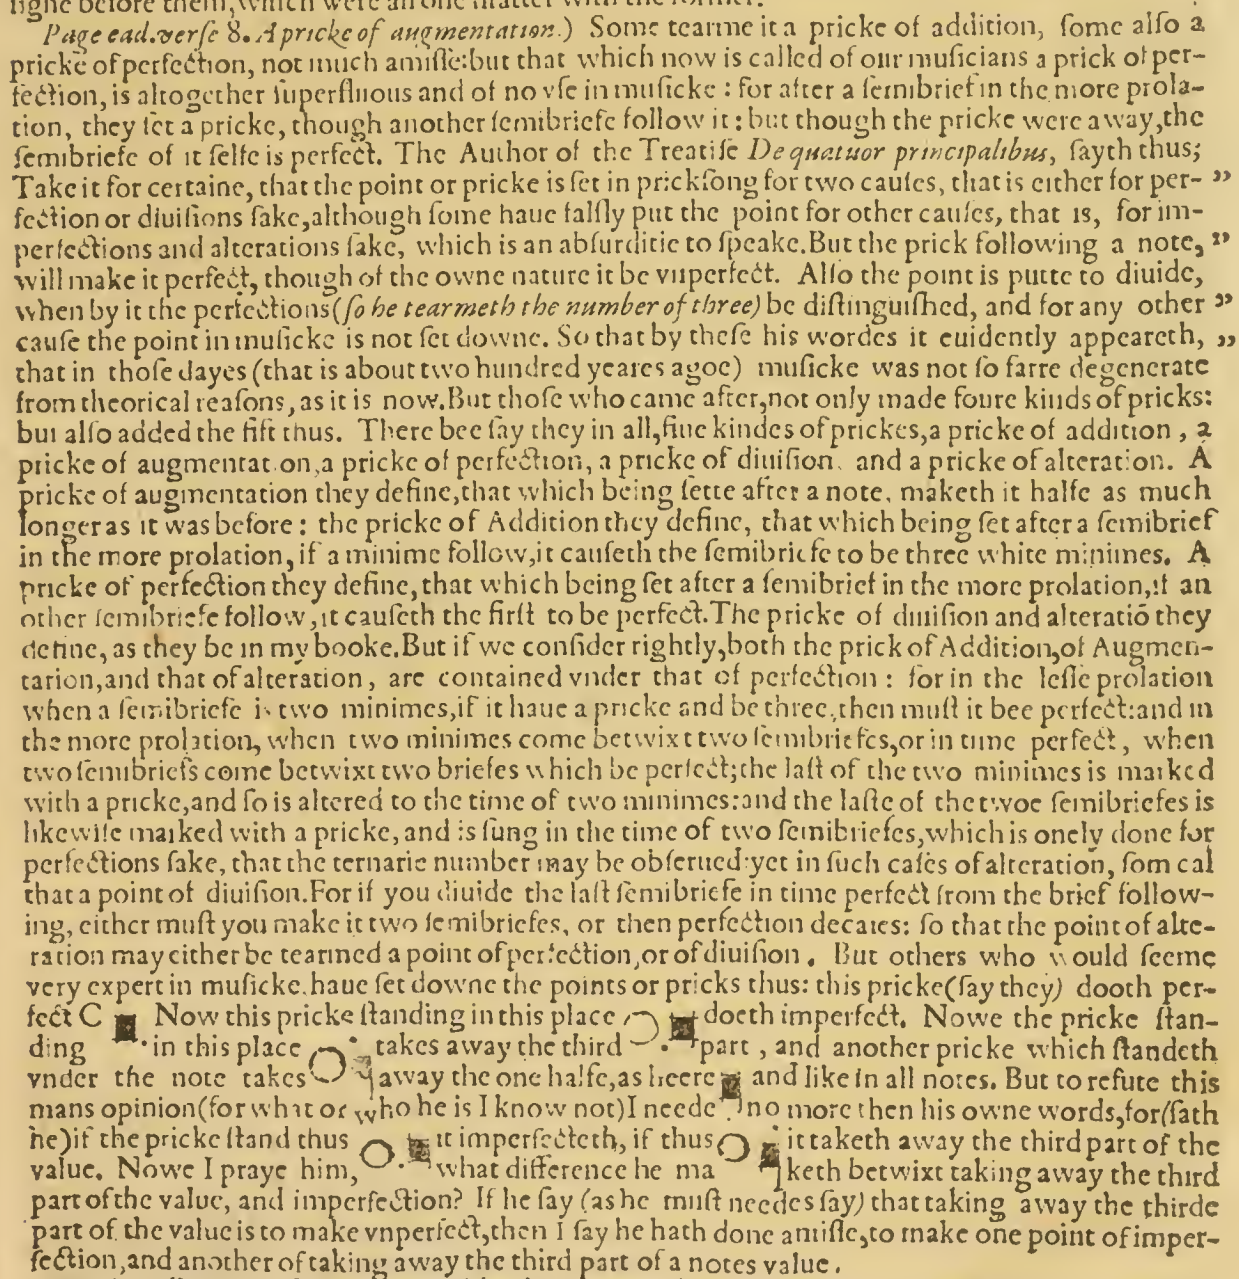 ligne before them, which were all one matter with the former.
Page ead. verſe 8. A pricke of augmentation.) Some tearme it a pricke of addition, ſome alſo a
pricke of perfection, not much amiſſe: but that which now is called of our muſicians a prick of per-
fection, is altogether ſuperfluous and of no vſe in muſicke: for after a ſemibrief in the more prola-
tion, they ſet a pricke, though another ſemibriefe follow it: but though the pricke were away, the
ſemibriefe of it ſelfe is perfect. The Author of the Treatiſe De quatuor principalibus, ſayth thus;
Take it for certaine, that the point or pricke is ſet in prickſong for two cauſes, that is either for per- ”
fection or diuiſions ſake, although ſome haue falſly put the point for other cauſes, that is, for im-
perfections and alterations ſake, which is an abſurditie to ſpeake. But the prick following a note, ”
will make it perfect, though of the owne nature it be vnperfect. Alſo the point is putte to diuide,
when by it the perfections (ſo he tearmeth the number of three) be diſtinguiſhed, and for any other ”
cauſe the point in muſicke is not ſet downe. So that by theſe his wordes it euidently appeareth, ”
that in thoſe dayes (that is about two hundred yeares agoe) muſicke was not ſo farre degenerate
from theorical reaſons, as it is now. But thoſe who came after, not only made foure kinds of pricks:
but alſo added the fift thus. There bee ſay they in all, fiue kindes of prickes, a pricke of addition, a
pricke of augmentation, a pricke of perfection, a pricke of diuiſion, and a pricke of alteration. A
pricke of augmentation they define, that which being ſette after a note, maketh it halfe as much
longer as it was before: the pricke of Addition they define, that which being ſet after a ſemibrief
in the more prolation, if a minime follow, it cauſeth the ſemibriefe to be three white minimes. A
pricke of perfection they define, that which being ſet after a ſemibrief in the more prolation, if an
other ſemibriefe follow, it cauſeth the firſt to be perfect. The pricke of diuiſion and alteratiō they
define, as they be in my booke. But if we conſider rightly, both the prick of Addition, of Augmen-
tation, and that of alteration, are contained vnder that of perfection: for in the leſſe prolation
when a ſemibriefe is two minimes, if it haue a pricke and be three, then muſt it bee perfect: and in
the more prolation, when two minimes come betwixt two ſemibriefes, or in time perfect, when
two ſemibriefs come betwixt two briefes which be perfect; the laſt of the two minimes is marked
with a pricke, and ſo is altered to the time of two minimes: and the laſte of the twoe ſemibriefes is
likewiſe marked with a pricke, and is ſung in the time of two ſemibriefes, which is onely done for
perfections ſake, that the ternarie number may be obſerued: yet in ſuch caſes of alteration, ſom cal
that a point of diuiſion. For if you diuide the laſt ſemibriefe in time perfect from the brief follow-
ing, either muſt you make it two ſemibriefes, or then perfection decaies: ſo that the point of alte-
ration may either be tearmed a point of perfection, or of diuiſion. But others who would ſeeme
very expert in muſicke, haue ſet downe the points or pricks thus: this pricke (ſay they) dooth per-
fect C Now this pricke ſtanding in this place doeth imperfect. Nowe the pricke ſtan-
ding in this place takes away the third part, and another pricke which ſtandeth
vnder the note takes away the one halfe, as heere and like in all notes. But to refute this
mans opinion (for what or who he is I know not) I neede no more then his owne words, for (ſath
he) if the pricke ſtand thus it imperfecteth, if thus it taketh away the third part of the
value. Nowe I praye him, what difference he maketh betwixt taking away the third
part of the value, and imperfection? If he ſay (as he muſt needes ſay) that taking away the thirde
part of the value is to make vnperfect, then I ſay he hath done amiſſe, to make one point of imper-
fection, and another of taking away the third part of a notes value.